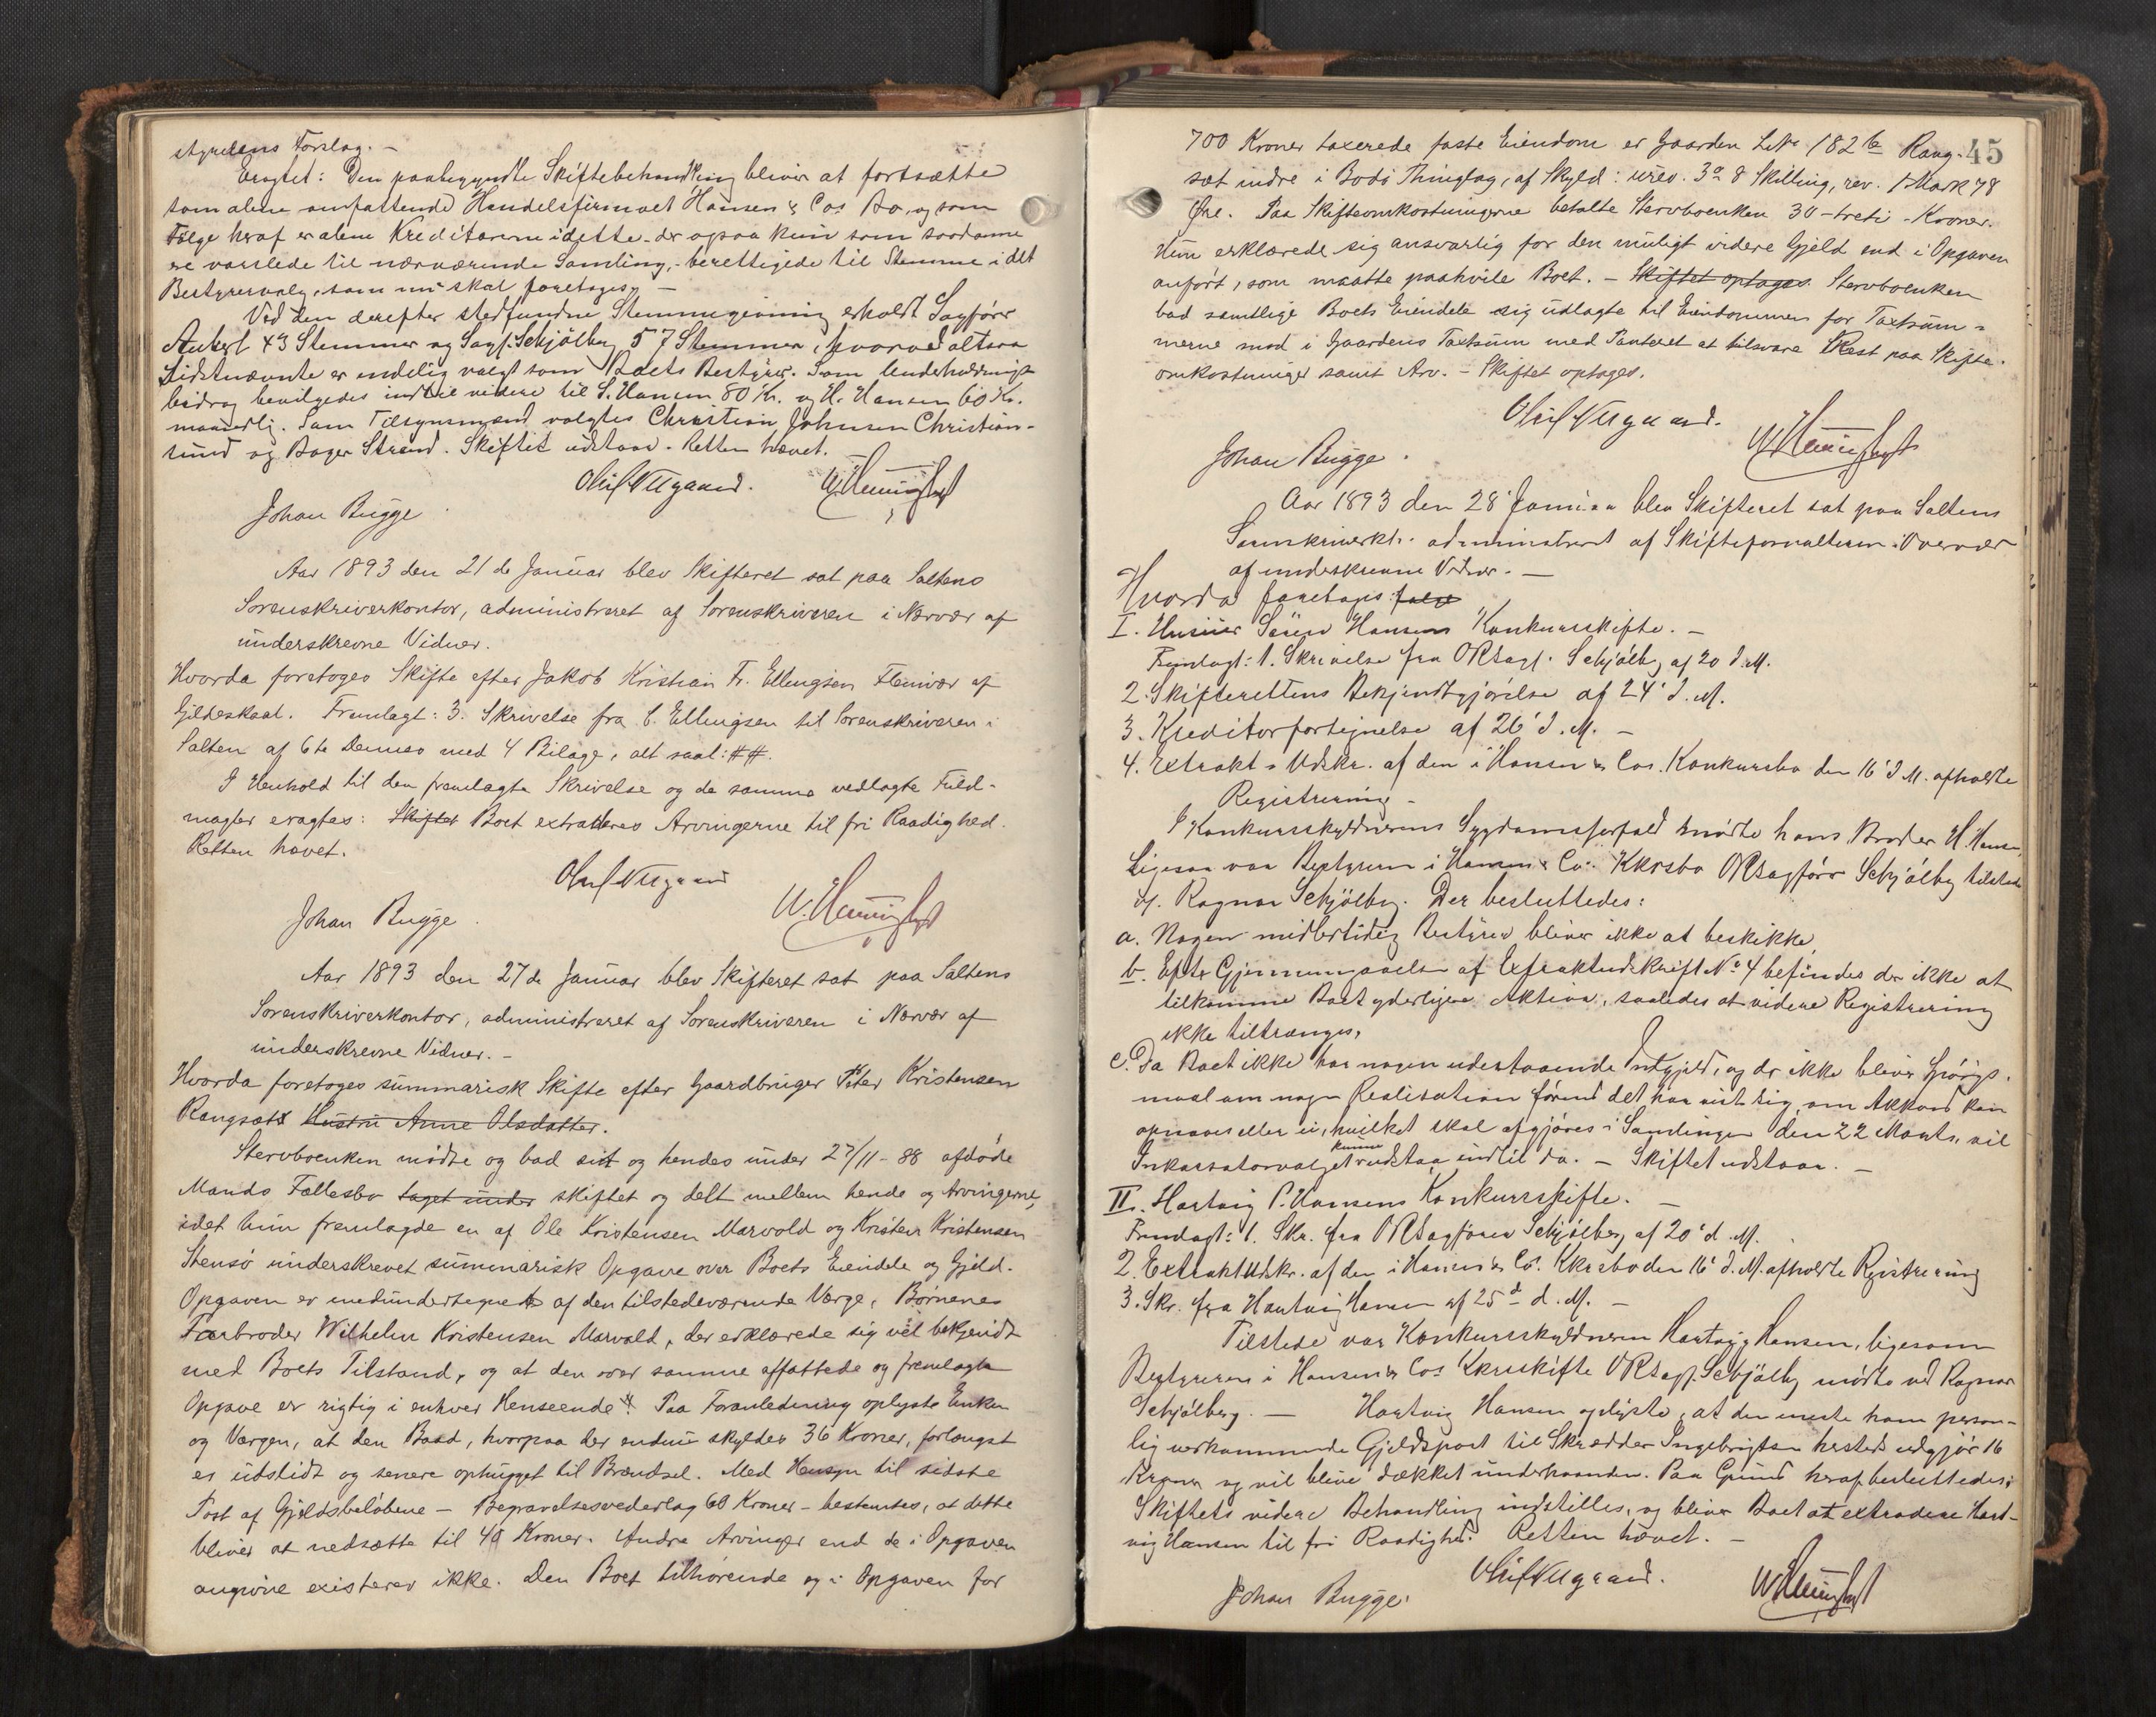 styrelens Forslag. –
Eragtet: Den paabegyndte Skiftebehandling bliver at fortsætte
som alene omfattende Handelsfirmaet Hansen & Cos Bo, og som
Følge heraf er alene Kreditorerne i dette – der ogsaa kun som saadanne
ere varslede til nærværende Samling, – berettigede til Stemme i det
Bestyrervalg, som nu skal foretages. –
Ved den derefter stedfundne Stemmegivning erholdt Sagfører
43 Stemmer og Sagf. Schjølberg 57 Stemmer, hvorved altsaa
Sidstnævnte er endelig valgt som Boets Bestyrer. Som Underholdnings-
bidrag bevilgedes indtil videre til S. Hansen 80 Kr. og H. Hansen 60 Kr.
maanedlig. Som Tilsynsmænd valgtes Christian Johnsen Christian-
sund og Bager Strand. Skiftet udstaar. Retten hævet.
Johan Bugge
Aar 1893 den 21de Januar blev Skifteret sat paa Saltens
Sorenskriverkontor, administreret af Sorenskriveren i Nærvær af
underskrevne Vidner.
Hvorda foretoges Skifte efter Jakob Kristian Fr. Ellingsen Fleinvær af
Gildeskaal. Fremlagt: 3. Skrivelse fra C. Ellingsen til Sorenskriveren i
Salten af 6te Dennes med 4 Bilage, alt saal: ##.
I Henhold til den fremlagte Skrivelse og de samme vedlagte Fuld-
magter eragtes: Skiftet Boet extraderes Arvingerne til fri Raadighed.
Retten hævet.
Johan Bugge.
Aar 1893 den 27de Januar blev Skifteret sat paa Saltens
Sorenskriverkontor, administreret af Sorenskriveren i Nærvær af
underskrevne Vidner. –
Hvorda foretoges summarisk Skifte efter Gaardbruger Peter Kristensen
Rangsæt Hustru Anne Olsdatter.
Stervboenken mødte og bad sit og hendes under 27/11 - 88 afdøde
Mands Fællesbo taget under skiftet og delt mellem hende og Arvingerne,
idet hun fremlagde en af Ole Kristensen Marvold og Kristen Kristensen
Stensø underskrevet summarisk Opgave over Boets Eiendele og Gjeld.
Opgaven er medundertegnet af den tilstedeværende Værge, Børnenes
Farbroder Wilhelm Kristensen Marvold, der erklærede sig vel bekjendt
med Boets Tilstand, og at den over samme affattede og fremlagte
Opgave er rigtig i enhver Henseende. Paa Foranledning oplyste Enken
og Værgen, at den Baad, hvorpaa der endnu skyldes 36 Kroner, forlængst
er udslidt og senere ophugget til Brændsel. Med Hensyn til sidste
Post af Gjeldsbeløbene – Begravelsesvederlag 60 Kroner – bestemtes, at dette
bliver at nedsætte til 40 Kroner. Andre Arvinger end de i Opgaven
angivne existerer ikke. Den Boet tilhørende og i Opgaven for
45
700 Kroner taxerede faste Eiendom er Gaarden LNo 182b Rang-
sæt indre i Bodø Thinglag, af Skyld: urev. 3 8 Skilling, rev. 1 Mark 78
Øre. Paa Skifteomkostningerne betalte Stervboenken 30 – treti – Kroner.
Hun erklærede sig ansvarlig for den muligt videre Gjeld end i Opgaven
anført, som maatte paahvile Boet. – Skiftet optages. Stervboenken
bad samtlige Boets Eiendele sig udlagte til Eiendommen for Taxtsum-
merne mod i Gaardens Taxtsum med Panteret at tilsvare Rest paa Skifte-
omkostninger samt Arv. – Skiftet optages.
Johan Bugge.
Aar 1893 den 28' Januar blev Skifteret sat paa Saltens
Sorenskriverktr. administreret af Skifteforvalteren i Overvær
af underskrevne Vidner. –
Hvorda foretages:
I. Søren Hansens Konkursskifte. –
Fremlagt: 1. Skrivelse fra ORSagf. Schjølberg af 20 d.M.
2. Skifterettens Bekjendtgjørelse af 24' d.M.
3. Kreditorfortegnelse af 26' d.M. –
4. Extrakt-Udskr. af den i Hansen & Cos. Konkursbo den 16' d.M. afholdte
Registrering –
I Konkursskyldnerens Sygdomsforfald mødte hans Broder H. Hansen,
Ligesaa var Bestyreren i Hansen & Co. Kkrsbo ORSagfører Schjølberg tilstede
v/. Ragnar Schjølberg. Der besluttedes:
a. Nogen midlertidig Bestyrer bliver ikke at beskikke
b. Efter Gjennemgaaelse af Extraktudskrift No 4 befindes der ikke at
tilkomme Boet yderligere Aktiva, saaledes at videre Registrering
ikke tiltrænges.
c. Da Boet ikke har nogen udestaaende Indgjeld, og der ikke bliver Spørgs-
maal om nogen Realisation førend det har vist sig, om Akkord kan
opnaaes eller ei, hvilket skal afgjøres i Samlingen den 22 Marts, vil
Inkassatorvalget kunne udstaa indtil da. – Skiftet udstaar. –
II. Hartvig P. Hansens Konkursskifte. –
Fremlagt: 1. Skr. fra ORSagfører Schjølberg af 20' d.M.
2. Extraktudskr. af den i Hansen & Co. Kkrsbo den 16' d.M. afholdte Registrering
3. Skr. fra Hartvig Hansen af 25d d.M. –
Tilstede var Konkursskyldneren Hartvig Hansen, ligesom
Bestyreren i Hansen & Cos Kkrsskifte ORSagf. Schjølberg mødte ved Ragnar
Schjølberg. – Hartvig Hansen oplyste, at den eneste ham person-
lig vedkommende Gjeldspost til Skrædder Ingebrigtsen hersteds udgjør 16
Kroner og vil blive dækket underhaanden. Paa Grund heraf besluttedes:
Skiftets videre Behandling indstilles, og bliver Boet at extradere Hart-
vig Hansen til fri Raadighed. Retten hævet. –
Johan Bugge.